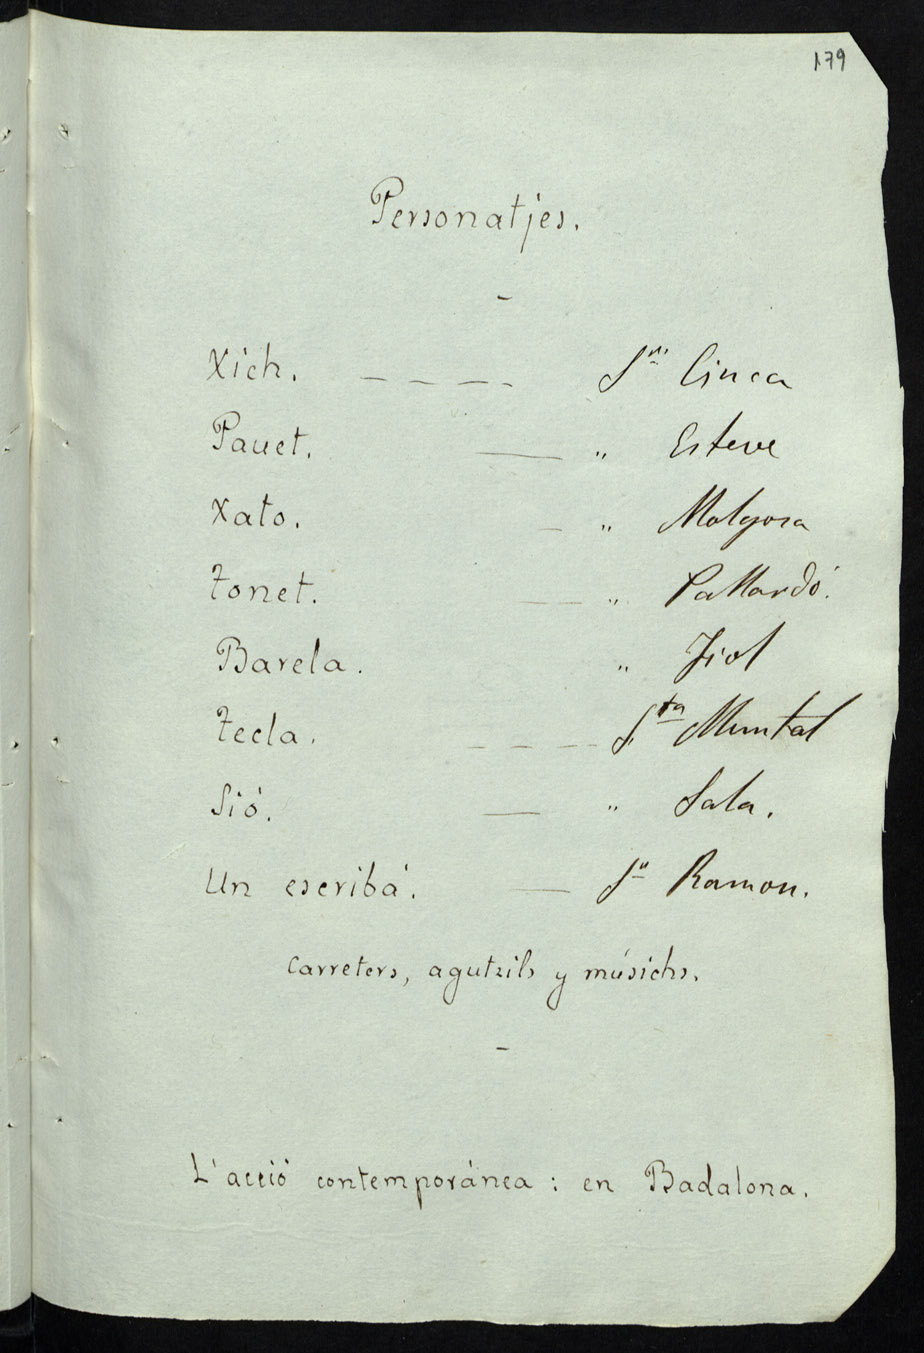 179
Personatjes.
Xich. Sr. Cinca
Pauet. " Esteve
Xato. " Molgosa
Tonet. " Pallardó.
Barela. " Fiol
Tecla. Sta Muntal
Sió. " Sala.
Un escribá. Sr Ramon.
Carreters, agutzils y músichs.
L'acció contemporánea: en Badalona.